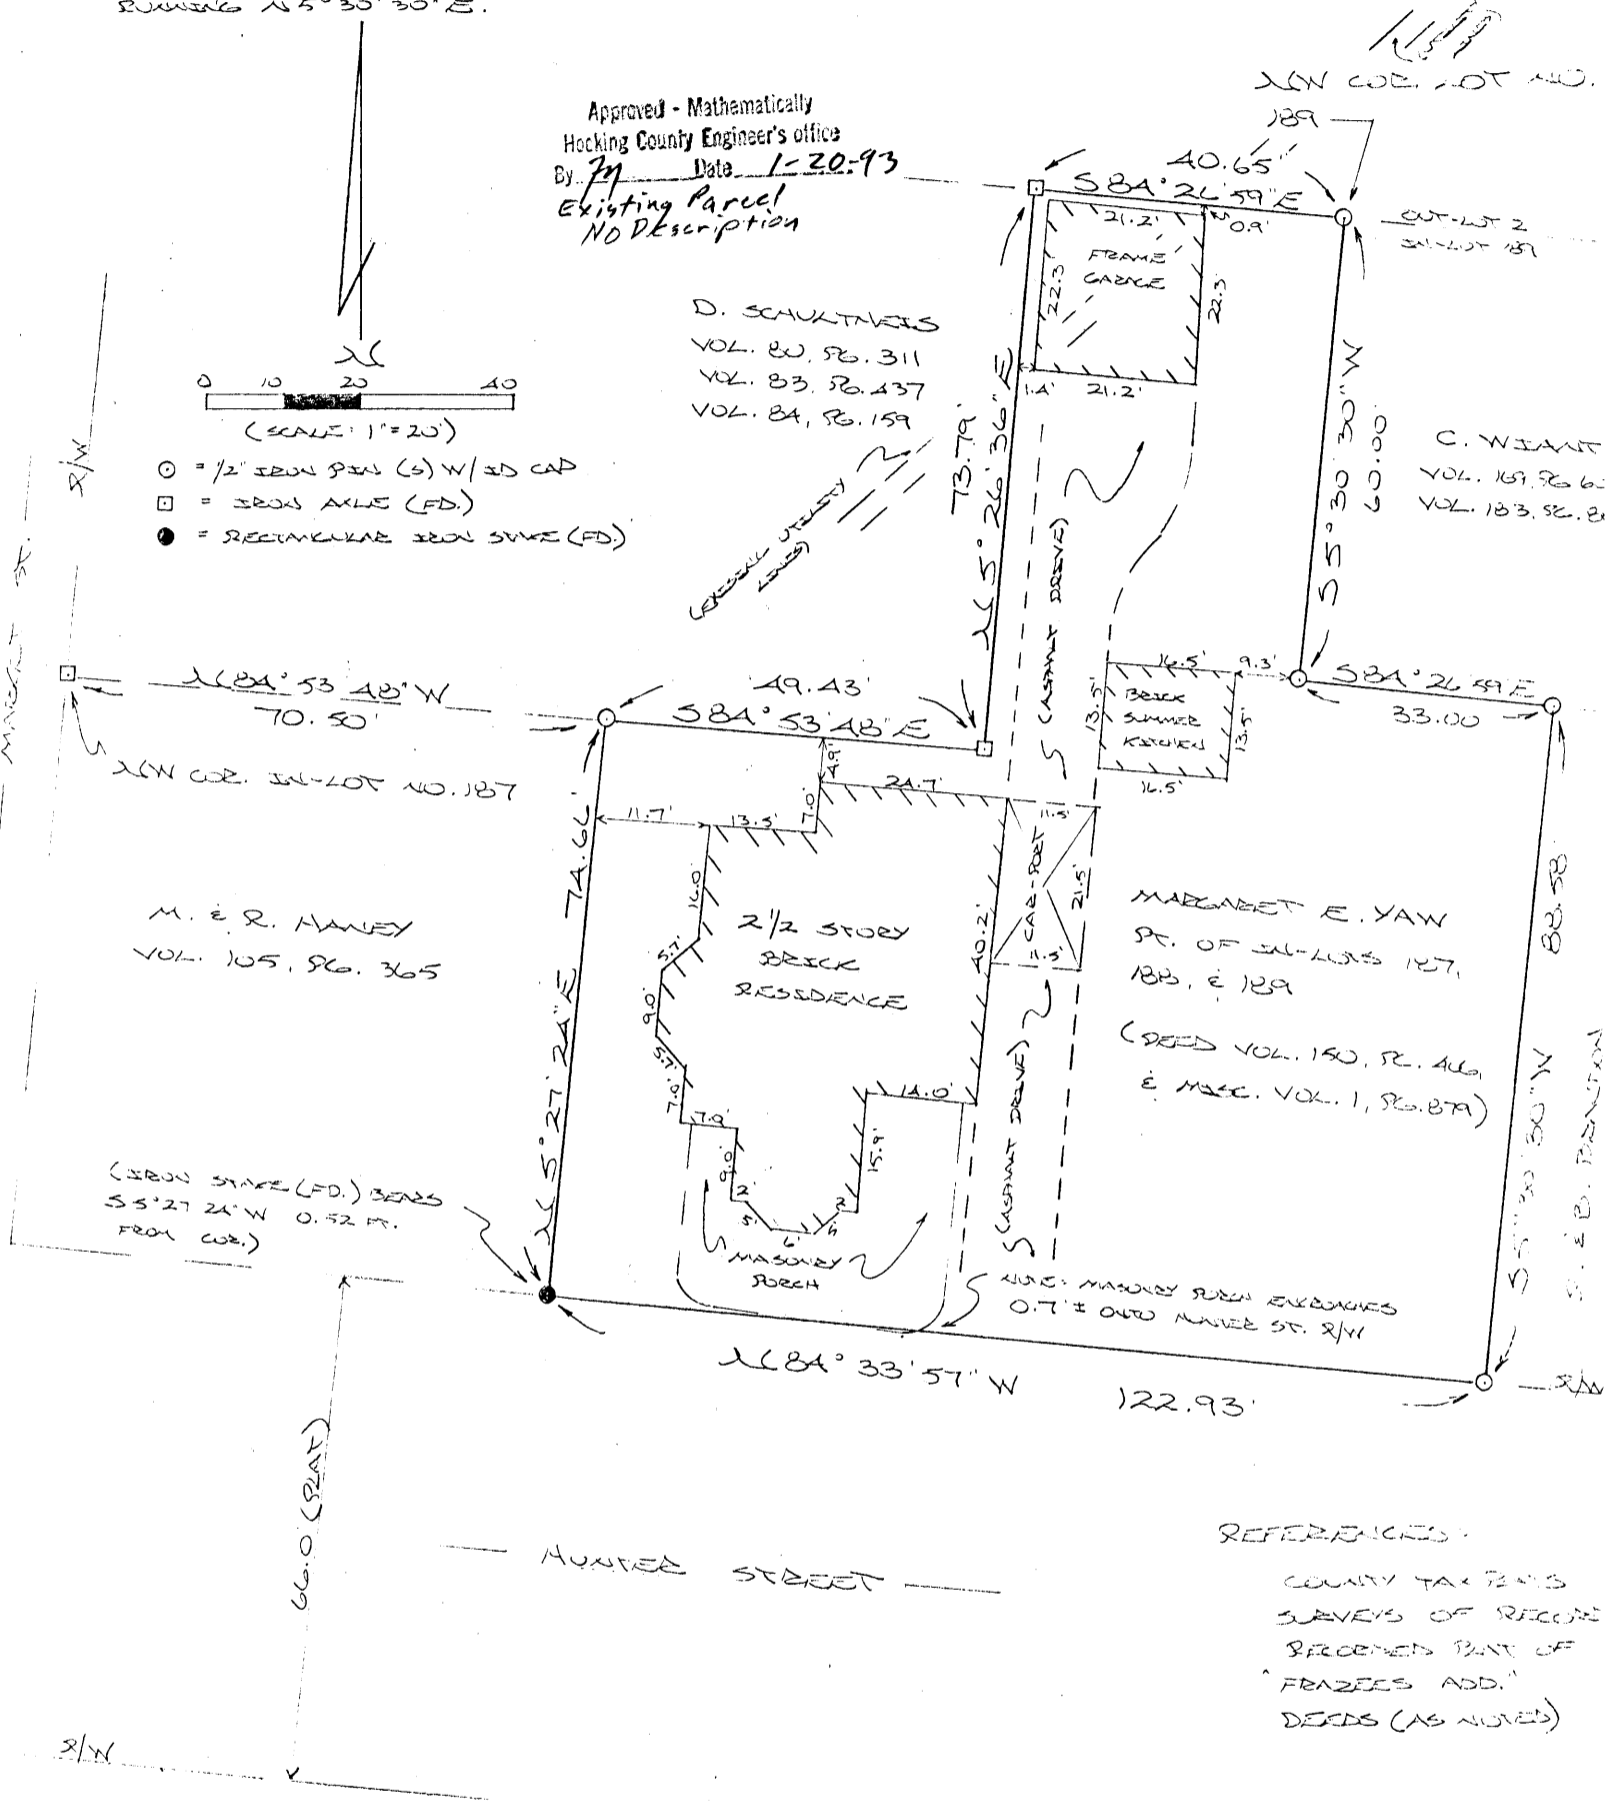 RUNNING N 5° 30' 30" E.
NW COR. LOT NO.
189
Approved - Mathematically
Hocking County Engineer's office
By Date 1-20-93
Existing Parcel
No Description
40.65'
S 84° 26' 59" E
OUT-LOT 2
IN-LOT 189
21.2'
0.9'
FRAME
GARAGE
22.3'
22.3'
1.4'
21.2'
D. SCHULTHEIS
VOL. 80, PG. 311
VOL. 83, PG. 437
VOL. 84, PG. 159
N
0 10 20 40
(SCALE: 1"=20')
⊙ = 1/2" IRON PIN (S) W/ ID CAP
⊡ = IRON AXLE (FD.)
● = RECTANGULAR IRON STAKE (FD.)
R/W
MARKET ST.
(EXISTING UTILITY
LINES)
73.79'
N 5° 26' 36" E
(ASPHALT DRIVE)
S 5° 30' 30" W
60.00'
C. WIANT
VOL. 183, PG.
N 84° 53' 48" W
70.50'
49.43'
S 84° 53' 48" E
16.5'
9.3'
BRICK
SUMMER
KITCHEN
13.5'
13.5'
16.5'
S 84° 26' 59" E
33.00
NW COR. IN-LOT NO. 187
4.9'
24.7'
7.0'
11.7'
13.5'
11.5'
CAR-PORT
21.5'
11.5'
40.2'
M. & R. HANEY
VOL. 105, PG. 365
74.66'
N 5° 27' 24" E
16.0'
5.7'
9.0'
5.7'
7.0'
7.0'
9.0'
2'
5'
6'
5'
2'
15.9'
14.0'
2 1/2 STORY
BRICK
RESIDENCE
MARGARET E. YAW
PT. OF IN-LOTS 187,
188, & 189
(DEED VOL. 150, PG. 416,
& MISC. VOL. 1, PG. 879)
88.58'
S 5° 30' 30" W
& B. BRINTON
(ASPHALT DRIVE)
(IRON STAKE (FD.) BEARS
S 5° 27' 24" W 0.52 FT.
FROM COR.)
MASONRY
PORCH
NOTE: MASONRY PORCH ENCROACHES
0.7' ± ONTO HUNTER ST. R/W
N 84° 33' 57" W
122.93'
R/W
66.0' (PLAT)
HUNTER STREET
REFERENCES:
COUNTY TAX
SURVEYS OF RECORD
RECORDED PLAT OF
"FRAZEES ADD."
DEEDS (AS NOTED)
R/W